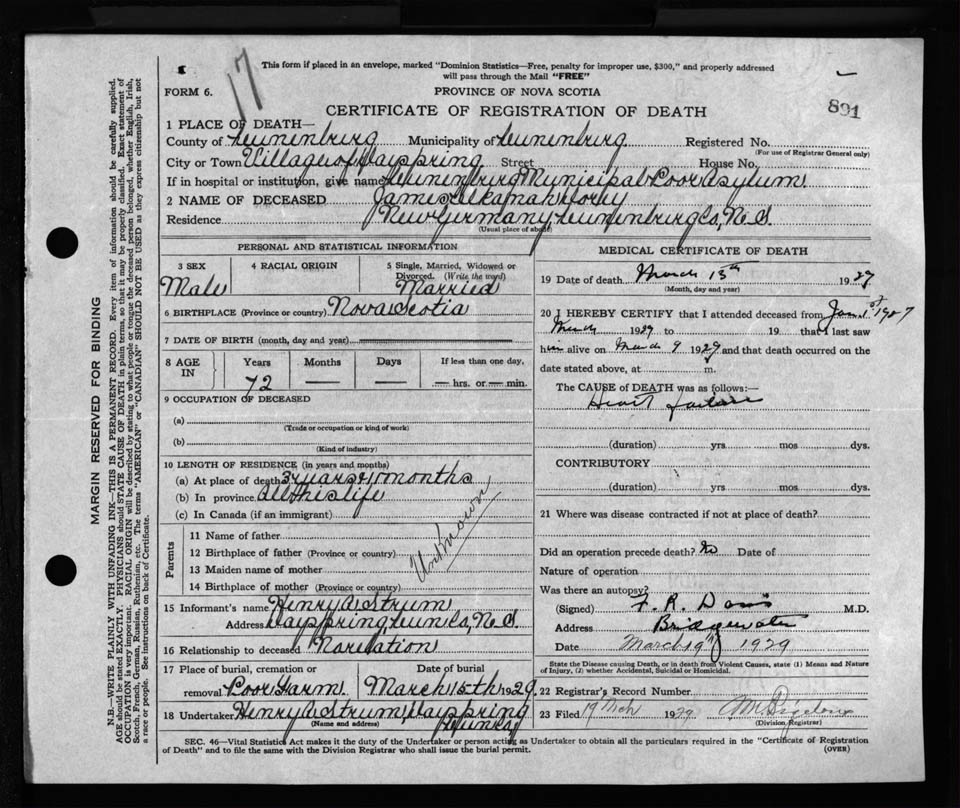 17
This form if placed in an envelope, marked "Dominion Statistics—Free, penalty for improper use, $300," and properly addressed
will pass through the Mail "FREE"
FORM 6.
PROVINCE OF NOVA SCOTIA
CERTIFICATE OF REGISTRATION OF DEATH
891
1 PLACE OF DEATH—
County of Lunenburg Municipality of Lunenburg Registered No.
(For use of Registrar General only)
City or Town Village of Dayspring Street House No.
If in hospital or institution, give name Lunenburg Municipal Poor Asylum
2 NAME OF DECEASED James
Residence New Germany, Lunenburg Co, N.S.
(Usual place of abode)
PERSONAL AND STATISTICAL INFORMATION
3 SEX
Male
4 RACIAL ORIGIN
5 Single, Married, Widowed or
Divorced. (Write the word)
Married
6 BIRTHPLACE (Province or country) Nova Scotia
7 DATE OF BIRTH (month, day and year)
8 AGE
IN
Years Months Days If less than one day,
72 — — — hrs. or — min.
9 OCCUPATION OF DECEASED
(a)
(Trade or occupation or kind of work)
(b)
(Kind of industry)
10 LENGTH OF RESIDENCE (in years and months)
(a) At place of death 3 years months
(b) In province All his life
(c) In Canada (if an immigrant)
Parents
11 Name of father
12 Birthplace of father (Province or country)
13 Maiden name of mother
14 Birthplace of mother (Province or country)
Unknown
15 Informant's name Henry A Strum
Address Dayspring, Lun Co, N.S.
16 Relationship to deceased No relation
17 Place of burial, cremation or
removal Poor Farm
Date of burial
March 15th 1929
18 Undertaker Henry A Strum, Dayspring
(Name and address) Lun Co
MEDICAL CERTIFICATE OF DEATH
19 Date of death March 13th 1929
(Month, day and year)
20 I HEREBY CERTIFY that I attended deceased from Jan 1st 1927
March 1929 to 19 that I last saw
him alive on March 9 1929 and that death occurred on the
date stated above, at m.
The CAUSE of DEATH was as follows:—
Heart failure
(duration) yrs mos dys.
CONTRIBUTORY
(duration) yrs mos dys.
21 Where was disease contracted if not at place of death?
Did an operation precede death? No Date of
Nature of operation
Was there an autopsy?
(Signed) F. R. Davis M.D.
Address Bridgewater
Date March 19th 1929
State the Disease causing Death, or in death from Violent Causes, state (1) Means and Nature
of Injury, (2) whether Accidental, Suicidal or Homicidal.
22 Registrar's Record Number
23 Filed 19 Mch 1929
(Division Registrar)
SEC. 46—Vital Statistics Act makes it the duty of the Undertaker or person acting as Undertaker to obtain all the particulars required in the "Certificate of Registration
of Death" and to file the same with the Division Registrar who shall issue the burial permit.
(OVER)
MARGIN RESERVED FOR BINDING
N.B.—WRITE PLAINLY WITH UNFADING INK—THIS IS A PERMANENT RECORD. Every item of information should be carefully supplied.
AGE should be stated EXACTLY. PHYSICIANS should STATE CAUSE OF DEATH in plain terms, so that it may be properly classified. Exact statement of
OCCUPATION is very important. RACIAL ORIGIN will be described by stating to what people or tongue the deceased person belonged, whether English, Irish,
Scotch, French, German, Russian, Ruthenian, etc. The terms "AMERICAN" or "CANADIAN" SHOULD NOT BE USED as they express citizenship but not
a race or people. See instructions on back of Certificate.